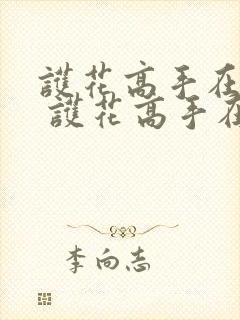 護花高手在
護花高手在
李向志